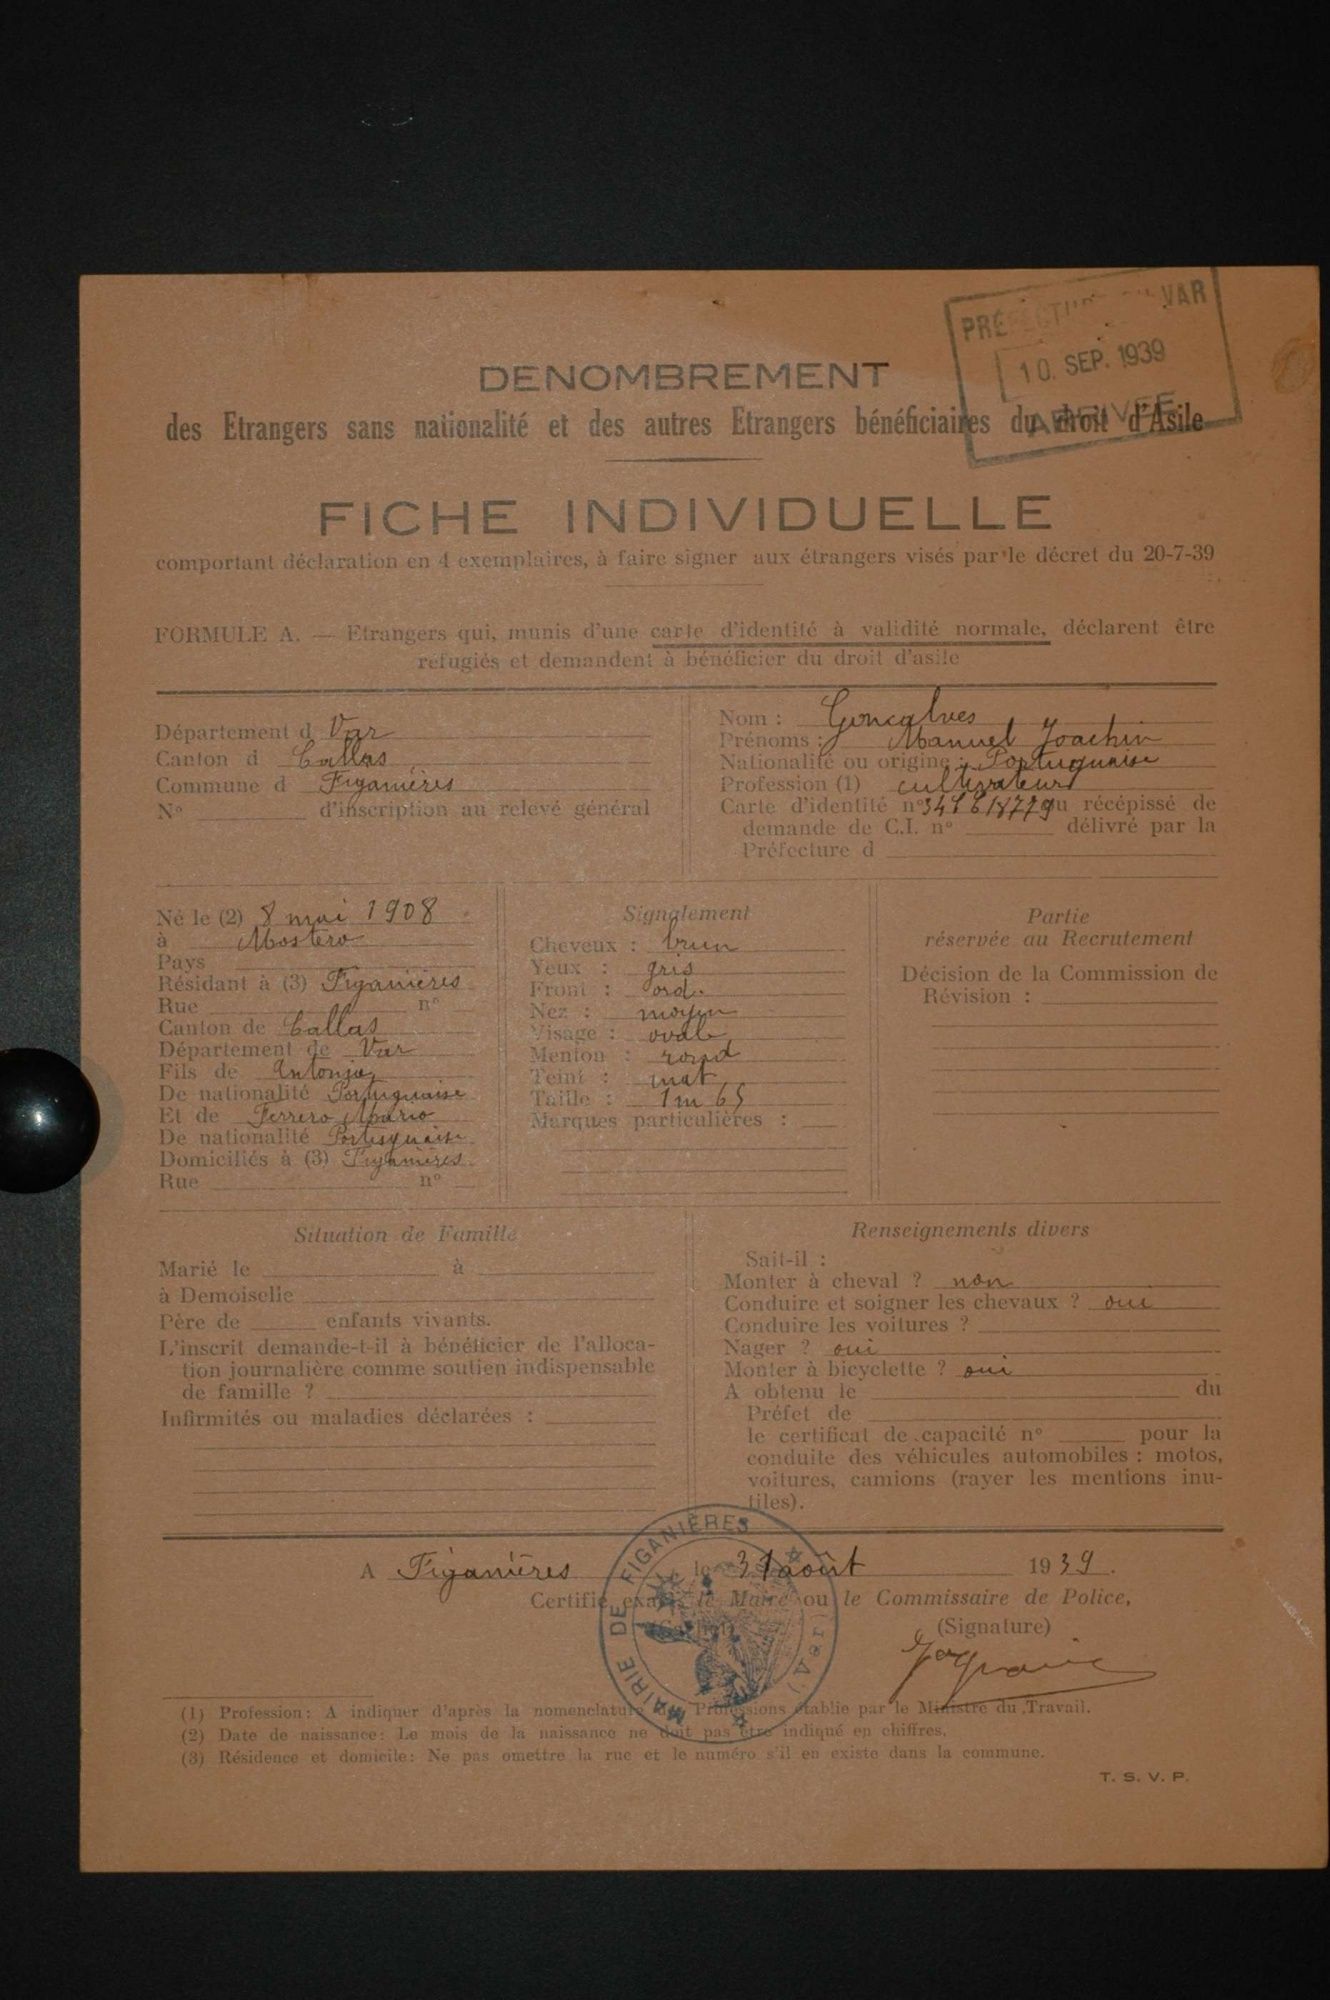 PRÉFECTURE DU VAR
10. SEP. 1939
ARRIVÉE
DENOMBREMENT
des Etrangers sans nationalité et des autres Etrangers bénéficiaires du droit d'Asile
FICHE INDIVIDUELLE
comportant déclaration en 4 exemplaires, à faire signer aux étrangers visés par le décret du 20-7-39
FORMULE A. — Etrangers qui, munis d'une carte d'identité à validité normale, déclarent être
réfugiés et demandent à bénéficier du droit d'asile
Département d Var
Canton d Callas
Commune d Figanières
N° d'inscription au relevé général
Nom : Goncalves
Prénoms : Manuel Joachin
Nationalité ou origine : Portuguaise
Profession (1) cultivateur
Carte d'identité n° ou récépissé de
demande de C.I. n° délivré par la
Préfecture d
Né le (2) 8 mai 1908
à Mostero
Pays
Résidant à (3) Figanières
Rue n°
Canton de Callas
Département de Var
Fils de
De nationalité Portuguaise
Et de Ferrero Mario
De nationalité Portuguaise
Domiciliés à (3) Figanières
Rue n°
Signalement
Cheveux : brun
Yeux : gris
Front : ord.
Nez : moyen
Visage : ovale
Menton : rond
Teint : mat
Taille : 1m65
Marques particulières :
Partie
réservée au Recrutement
Décision de la Commission de
Révision :
Situation de Famille
Marié le à
à Demoiselle
Père de enfants vivants.
L'inscrit demande-t-il à bénéficier de l'alloca-
tion journalière comme soutien indispensable
de famille ?
Infirmités ou maladies déclarées :
Renseignements divers
Sait-il :
Monter à cheval ? non
Conduire et soigner les chevaux ? oui
Conduire les voitures ?
Nager ? oui
Monter à bicyclette ? oui
A obtenu le du
Préfet de
le certificat de capacité n° pour la
conduite des véhicules automobiles : motos,
voitures, camions (rayer les mentions inu-
tiles).
A Figanières le 31 août 1939.
Certifié exact le Maire ou le Commissaire de Police,
(Cachet) (Signature)
MAIRIE DE FIGANIÈRES (Var)
(1) Profession : A indiquer d'après la nomenclature des Professions établie par le Ministre du Travail.
(2) Date de naissance : Le mois de la naissance ne doit pas être indiqué en chiffres.
(3) Résidence et domicile : Ne pas omettre la rue et le numéro s'il en existe dans la commune.
T. S. V. P.